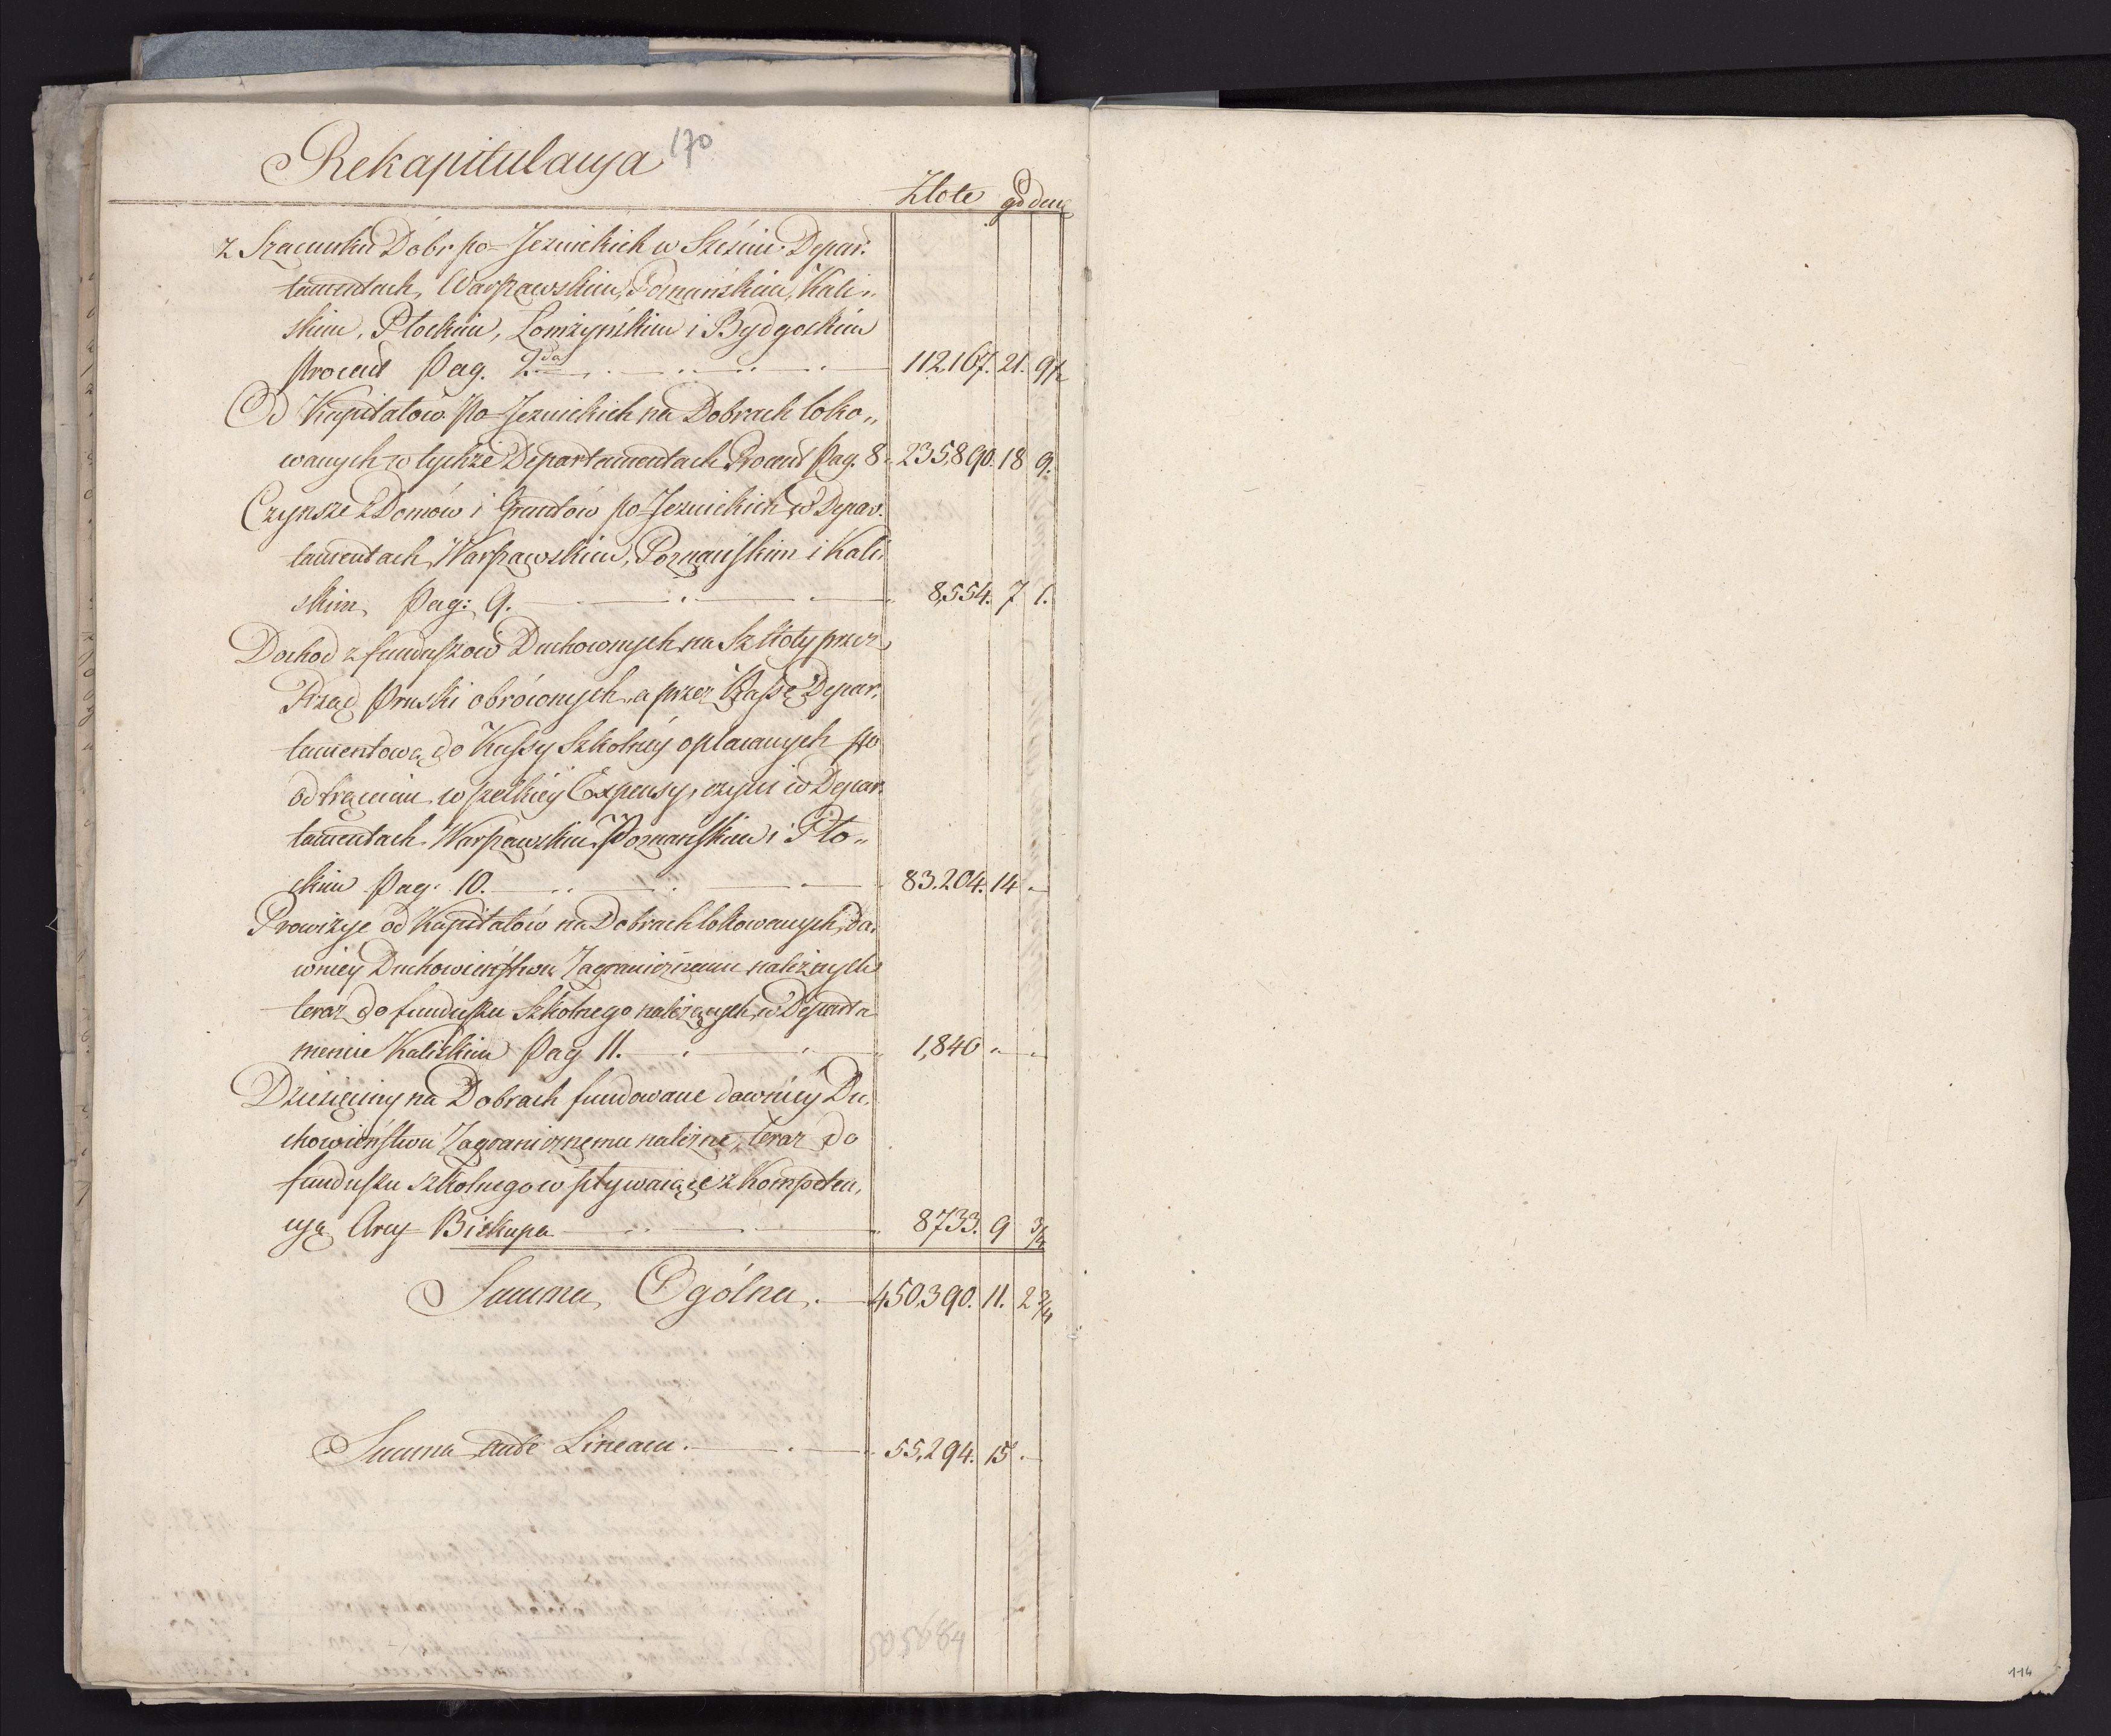 Rekapitulacya
170
Złote gr den
z Szacunku Dóbr po-Jezuickich w Sześciu Depar.
tamentach, Warszawskim, Poznańskim, Kali„
skim, Płockim, Łomżyńskim i Bydgoskim
Procent Pag. 112,167. 21. 9 1/2
Od Kapitałów Po-Jezuickich na Dobrach loko„
wanych w tychże Departamentach Procent Pag. 8. 235,890. 18 9.
Czynsze z Domów i Gruntów po-Jezuickich w Depar.
tamentach, Warszawskim, Poznańskim i Kali
skim, Pag: 9. 8,554. 7 1.
Dochod z funduszow Duchownych na Szkoły przez
Rząd Pruski obróconych, a przez Kassę Depar.
tamentową do Kassy Szkolnéy opłacanych po
odtrąceniu wszelkiéy Expensy, czyni w Depar.
tamentach Warszawskim, Poznańskim i Pło„
ckim Pag. 10. 83.204. 14 „
Prowizye od Kapitałów na Dobrach lokowanych, da.
wniey Duchowieństwu Zagranicznemu należnych
teraz do funduszu Szkolnego należących, w Departa
mencie Kaliskim Pag 11. 1,840 „ „
Dziesięciny na Dobrach fundowane dawniéy Du.
chowieństwu Zagranicznemu należne, teraz do
funduszu szkolnego wpływaiące z Kompeten.
cyą Arcy-Biskupa 8733. 9 3/4
Summa Ogólna. 450.390. 11. 2 3/4
Summa ante Lineam. 55,294. 15 „
505684
114